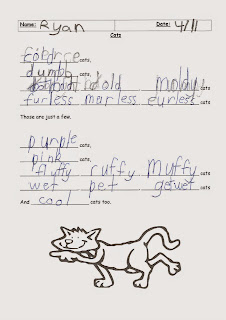 Name: Ryan Date: 4/11
Cats
cats,
dumb cats,
old moldy cats
furless marless eurless cats
Those are just a few.
purple cats,
pink cats,
fluffy ruffy Muffy cats
wet pet getwet cats
And cool cats too.